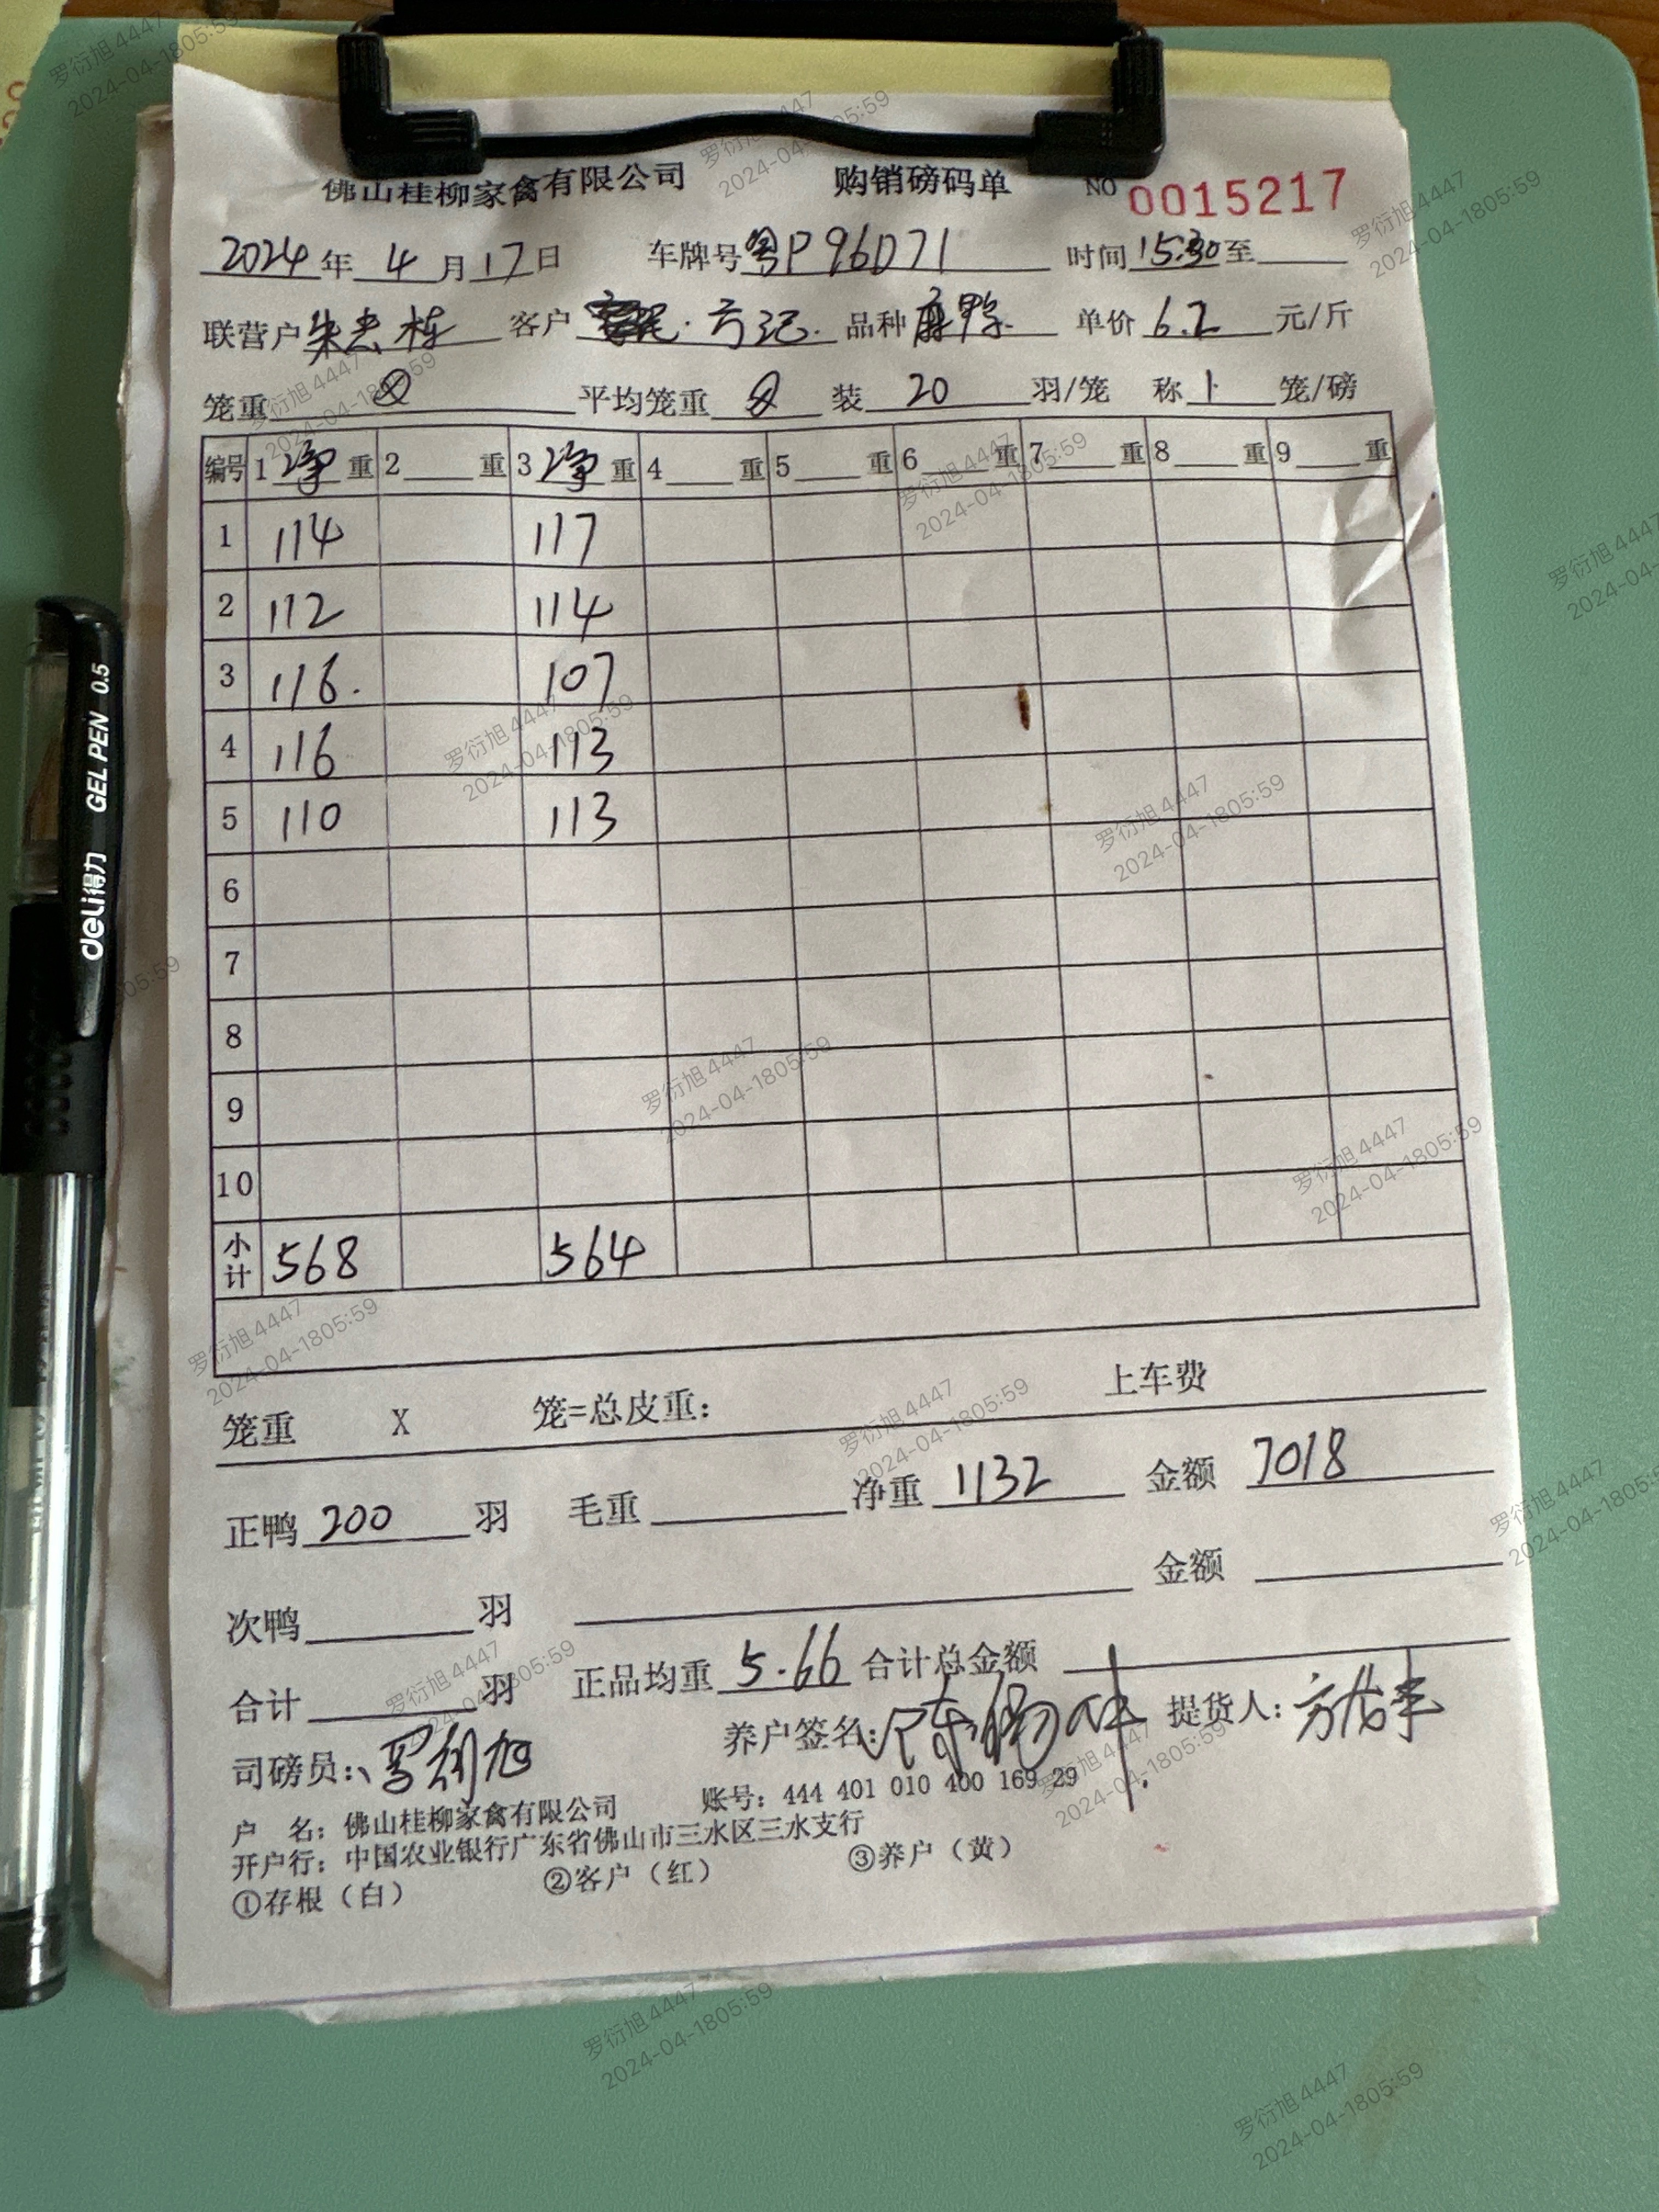 佛山桂柳家禽有限公司 购销磅码单 NO 0015217
2024年4月17日 车牌号粤P96D71 时间15:30至
联营户朱志栋 客户 方记. 品种麻鸭 单价6.2元/斤
笼重 平均笼重 装20羽/笼 称1笼/磅
编号 1净重 2重 3净重 4重 5重 6重 7重 8重 9重
1 114 117
2 112 114
3 116. 107
4 116 113
5 110 113
6
7
8
9
10
小计 568 564
笼重 X 笼=总皮重: 上车费
正鸭200羽 毛重 净重1132 金额7018
次鸭 羽 金额
合计 羽 正品均重5.66 合计总金额
司磅员: 养户签名: 提货人:
户 名: 佛山桂柳家禽有限公司 账号: 444 401 010 400 169 29
开户行: 中国农业银行广东省佛山市三水区三水支行
①存根(白) ②客户(红) ③养户(黄)
deli得力 GEL PEN 0.5
罗衍旭 4447
2024-04-1805:59